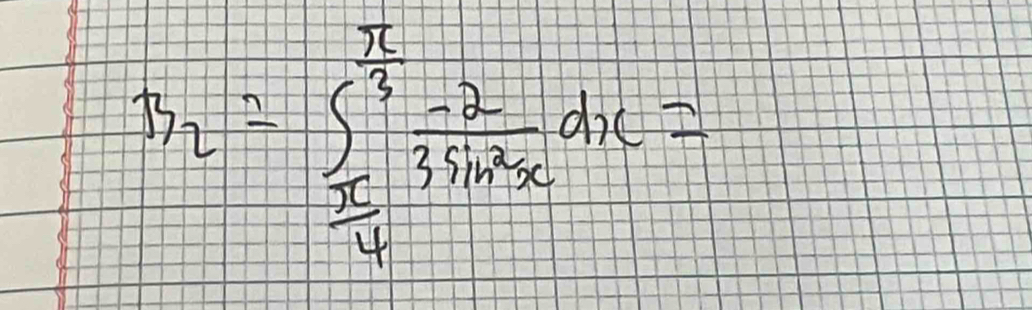 B₂ = ∫_{π/4}^{π/3} \frac{-2}{3 sin²x} dx =